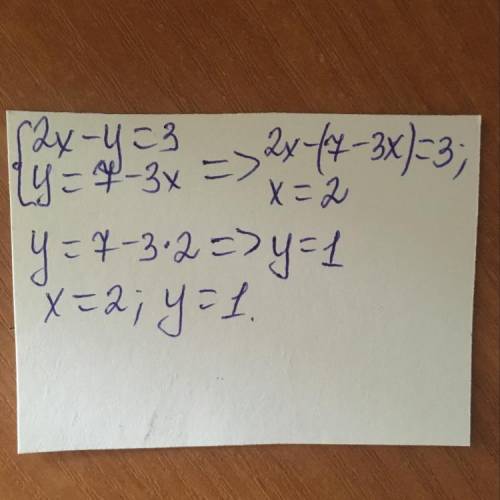 {2x-y=3
{y=7-3x => 2x-(7-3x)=3;
x=2
y=7-3·2=>y=1
x=2; y=1.